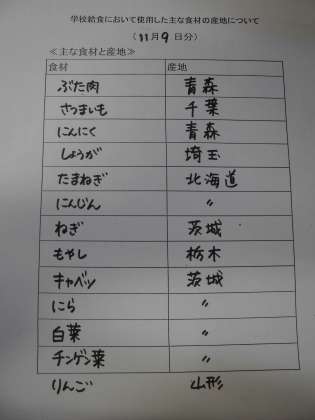 学校給食において使用した主な食材の産地について
（11月9日分）
≪主な食材と産地≫
食材 産地
ぶた肉 青森
さつまいも 千葉
にんにく 青森
しょうが 埼玉
たまねぎ 北海道
にんじん 〃
ねぎ 茨城
もやし 栃木
キャベツ 茨城
にら 〃
白菜 〃
チンゲン菜 〃
りんご 山形